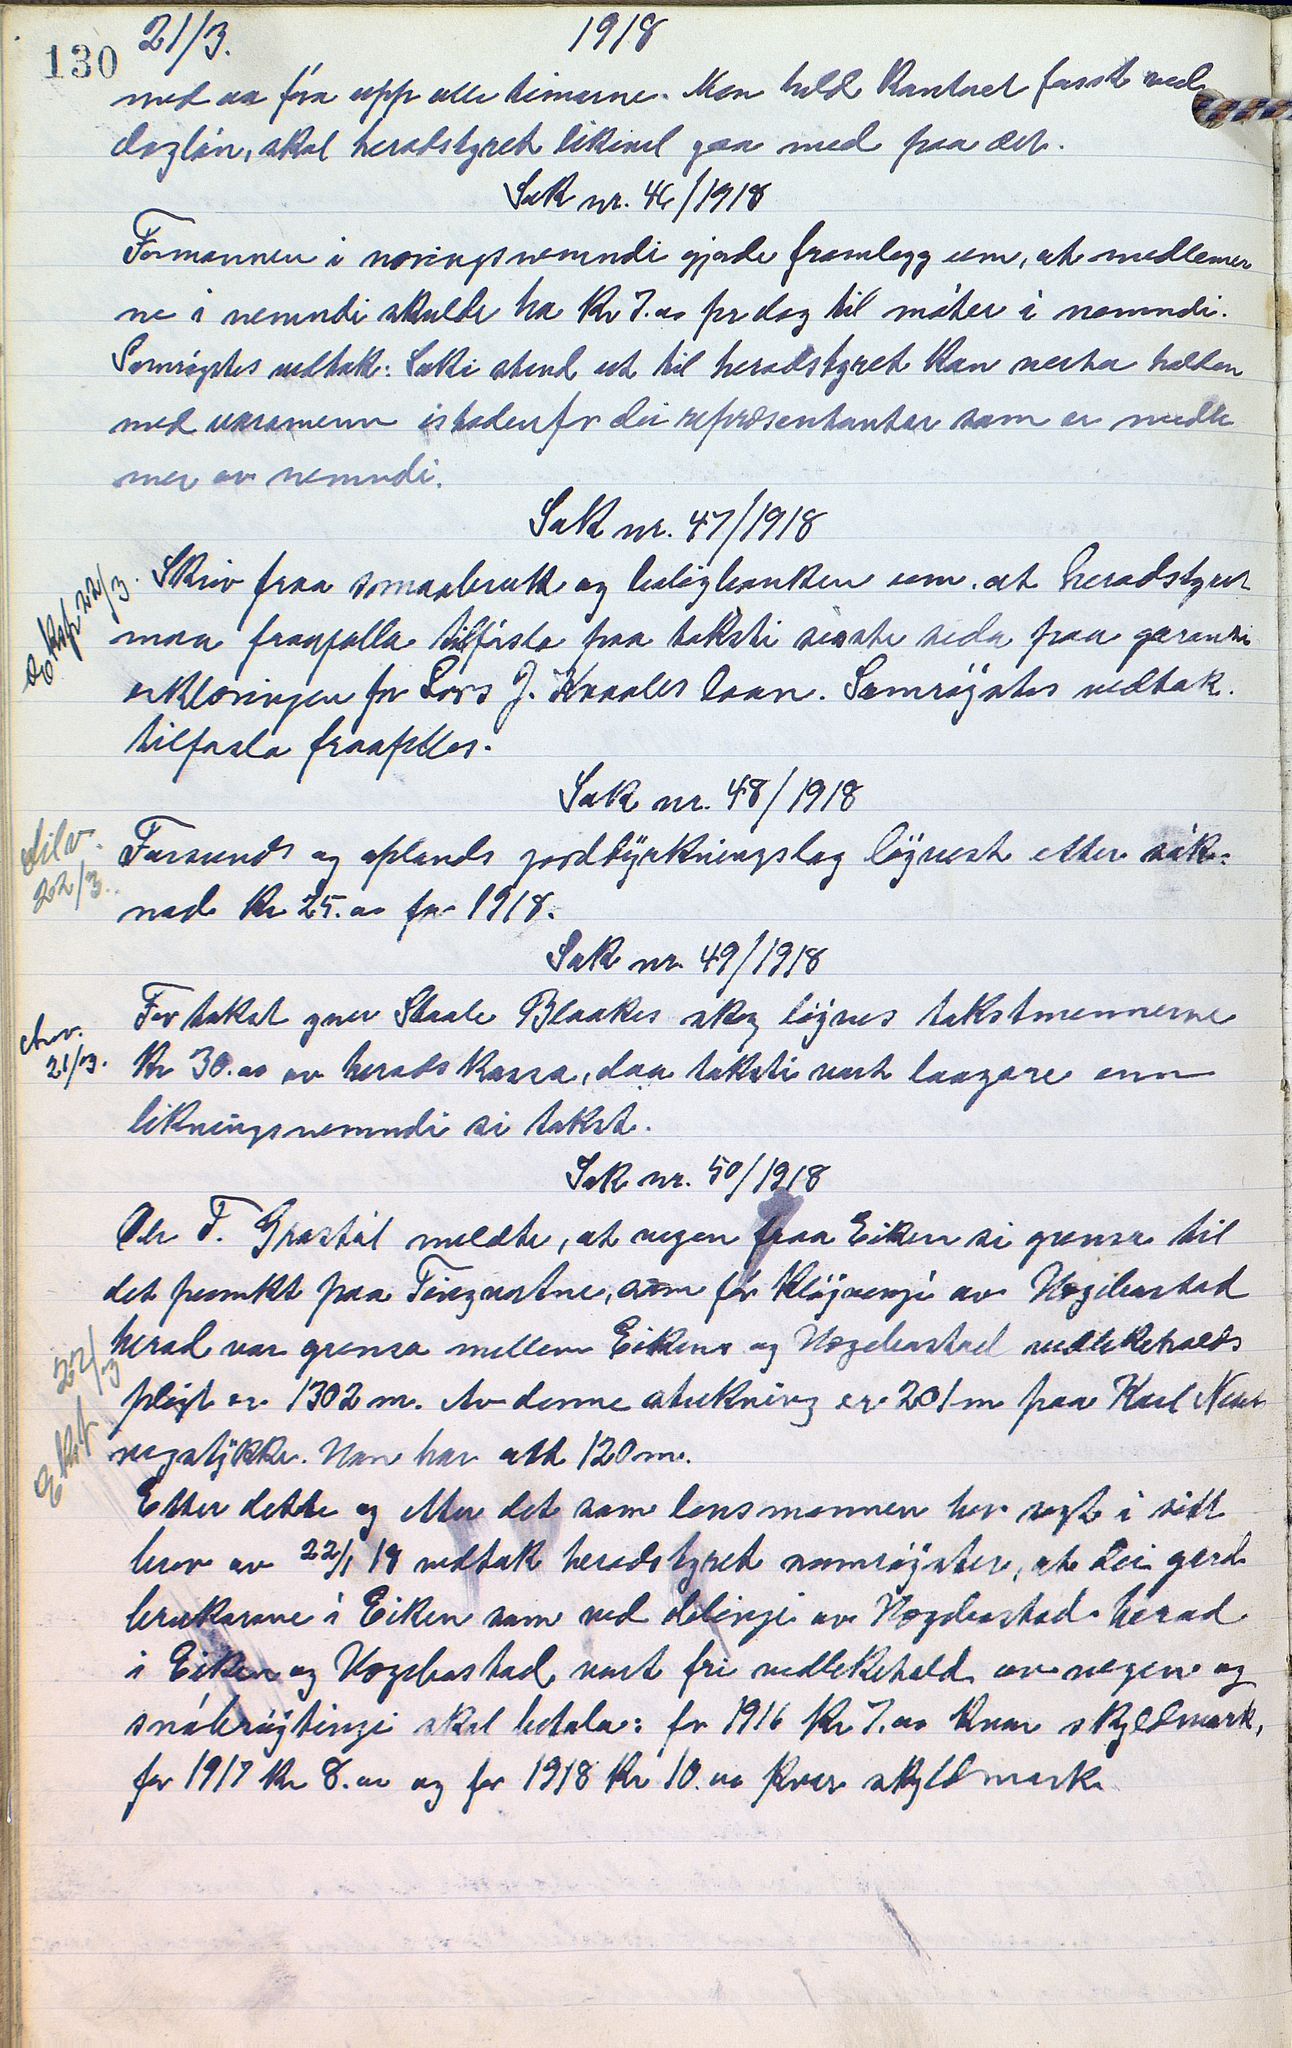 130
21/3.
1918
med aa föra upp alle timarne. Men held Kontoret fasst ved
daglön, skal heradstyret likevel gaa med paa det.
Sak nr. 46/1918
Formannen i næringsnemndi gjorde framlegg um, at medlemer
ne i nemndi skulde ha Kr 7.00 pr dag til möter i nemndi.
Samröystes vedtak: Saki stend ut til heradstyret kan verta halden
med varamenn istadenfor dei repræsentantar som er medle
mer av nemndi.
Sak nr. 47/1918
Eksp 22/3.
Skriv fraa smaabruk og bustadbanken um at heradstyret
maa fraafalla tilföisla paa taksti siste sida paa garanti
erklæringen for Lars J. Kvaales laan. Samröystes vedtak.
tilfösla fraafelles.
Sak nr. 48/1918
tilv.
22/3.
Farsunds og oplands jorddyrkningslag löyvest etter sök-
nad Kr 25.00 for 1918.
Sak nr. 49/1918
anv.
21/3.
For takst yver Staale Blaakes skog löyves takstmennerne
Kr 30.00 av heradskassa, daa taksti vart laagare enn
likningsnemndi si takst.
Sak nr. 50/1918
Eksp 22/3
Ole T. Grastöl meldte, at vegen fraa Eiken si grense til
det punkt paa Tingvatne, som för klöyvingi av Hægebostad
herad var grensa millom Eiken og Hægebostad vedlikehalds
pligt er 1302 m. Av denne strekning er 201 m paa Karl
vegstykke. Han har att 120 m.
Etter dette og etter det som lensmannen hev sagt i sitt
brev av 22/1 18 vedtok heradstyret samröystes, at dei gard
brukarane i Eiken som ved delingi av Hægebostad herad
i Eiken og Hægebostad vart fri vedlikehald av vegen og
snöbröytingi skal betala: for 1916 Kr 7.00 kvar skyldmark,
for 1917 Kr 8.00 og for 1918 Kr 10.00 kvar skyldmark.